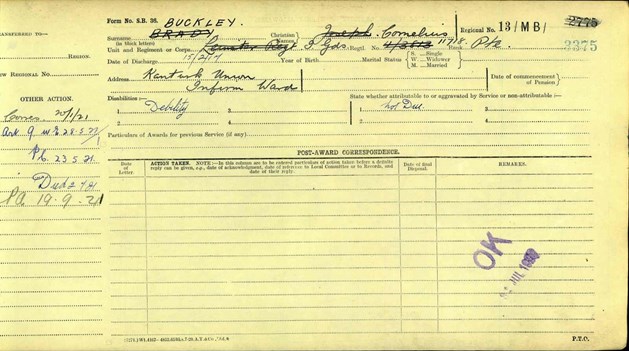 TRANSFERRED TO—
REGION.
NEW REGIONAL No.
OTHER ACTION.
20/1/21
23.5.21.
PA 19-9-21
Form No. S.B. 36.
BUCKLEY.
Surname BRADY
(in block letters)
Christian Names Joseph Cornelius
Regional No. 13/MB/ 2775
3375
Unit and Regiment or Corps Leinster Regt I. Gds. Regtl. No. 11718 Rank Pte.
Date of Discharge Year of Birth Marital Status S. ... Single W. ... Widower M. ... Married
Address Kanturk Union
Infirm Ward
Date of commencement of Pension
Disabilities:—
1 Debility
2
3
4
State whether attributable to or aggravated by Service or non-attributable:—
1 Not Due.
2
3
4
Particulars of Awards for previous Service (if any)
POST-AWARD CORRESPONDENCE.
Date of Letter.
ACTION TAKEN. NOTE:—In this column are to be entered particulars of action taken before a definite reply can be given, e.g., date of acknowledgment, date of reference to Local Committee or to Records, and date of their reply.
Date of final Disposal.
REMARKS.
OK
P.T.O.